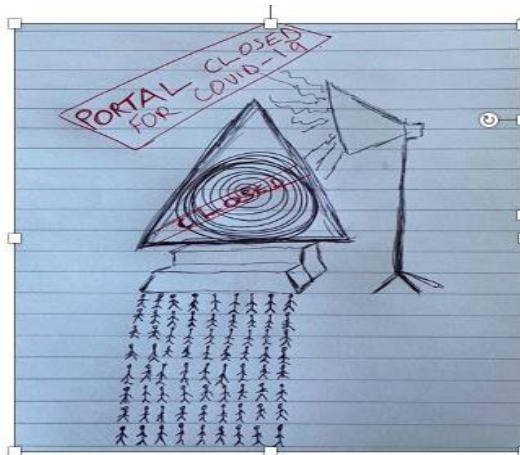 PORTAL CLOSED
FOR COVID-19
CLOSED